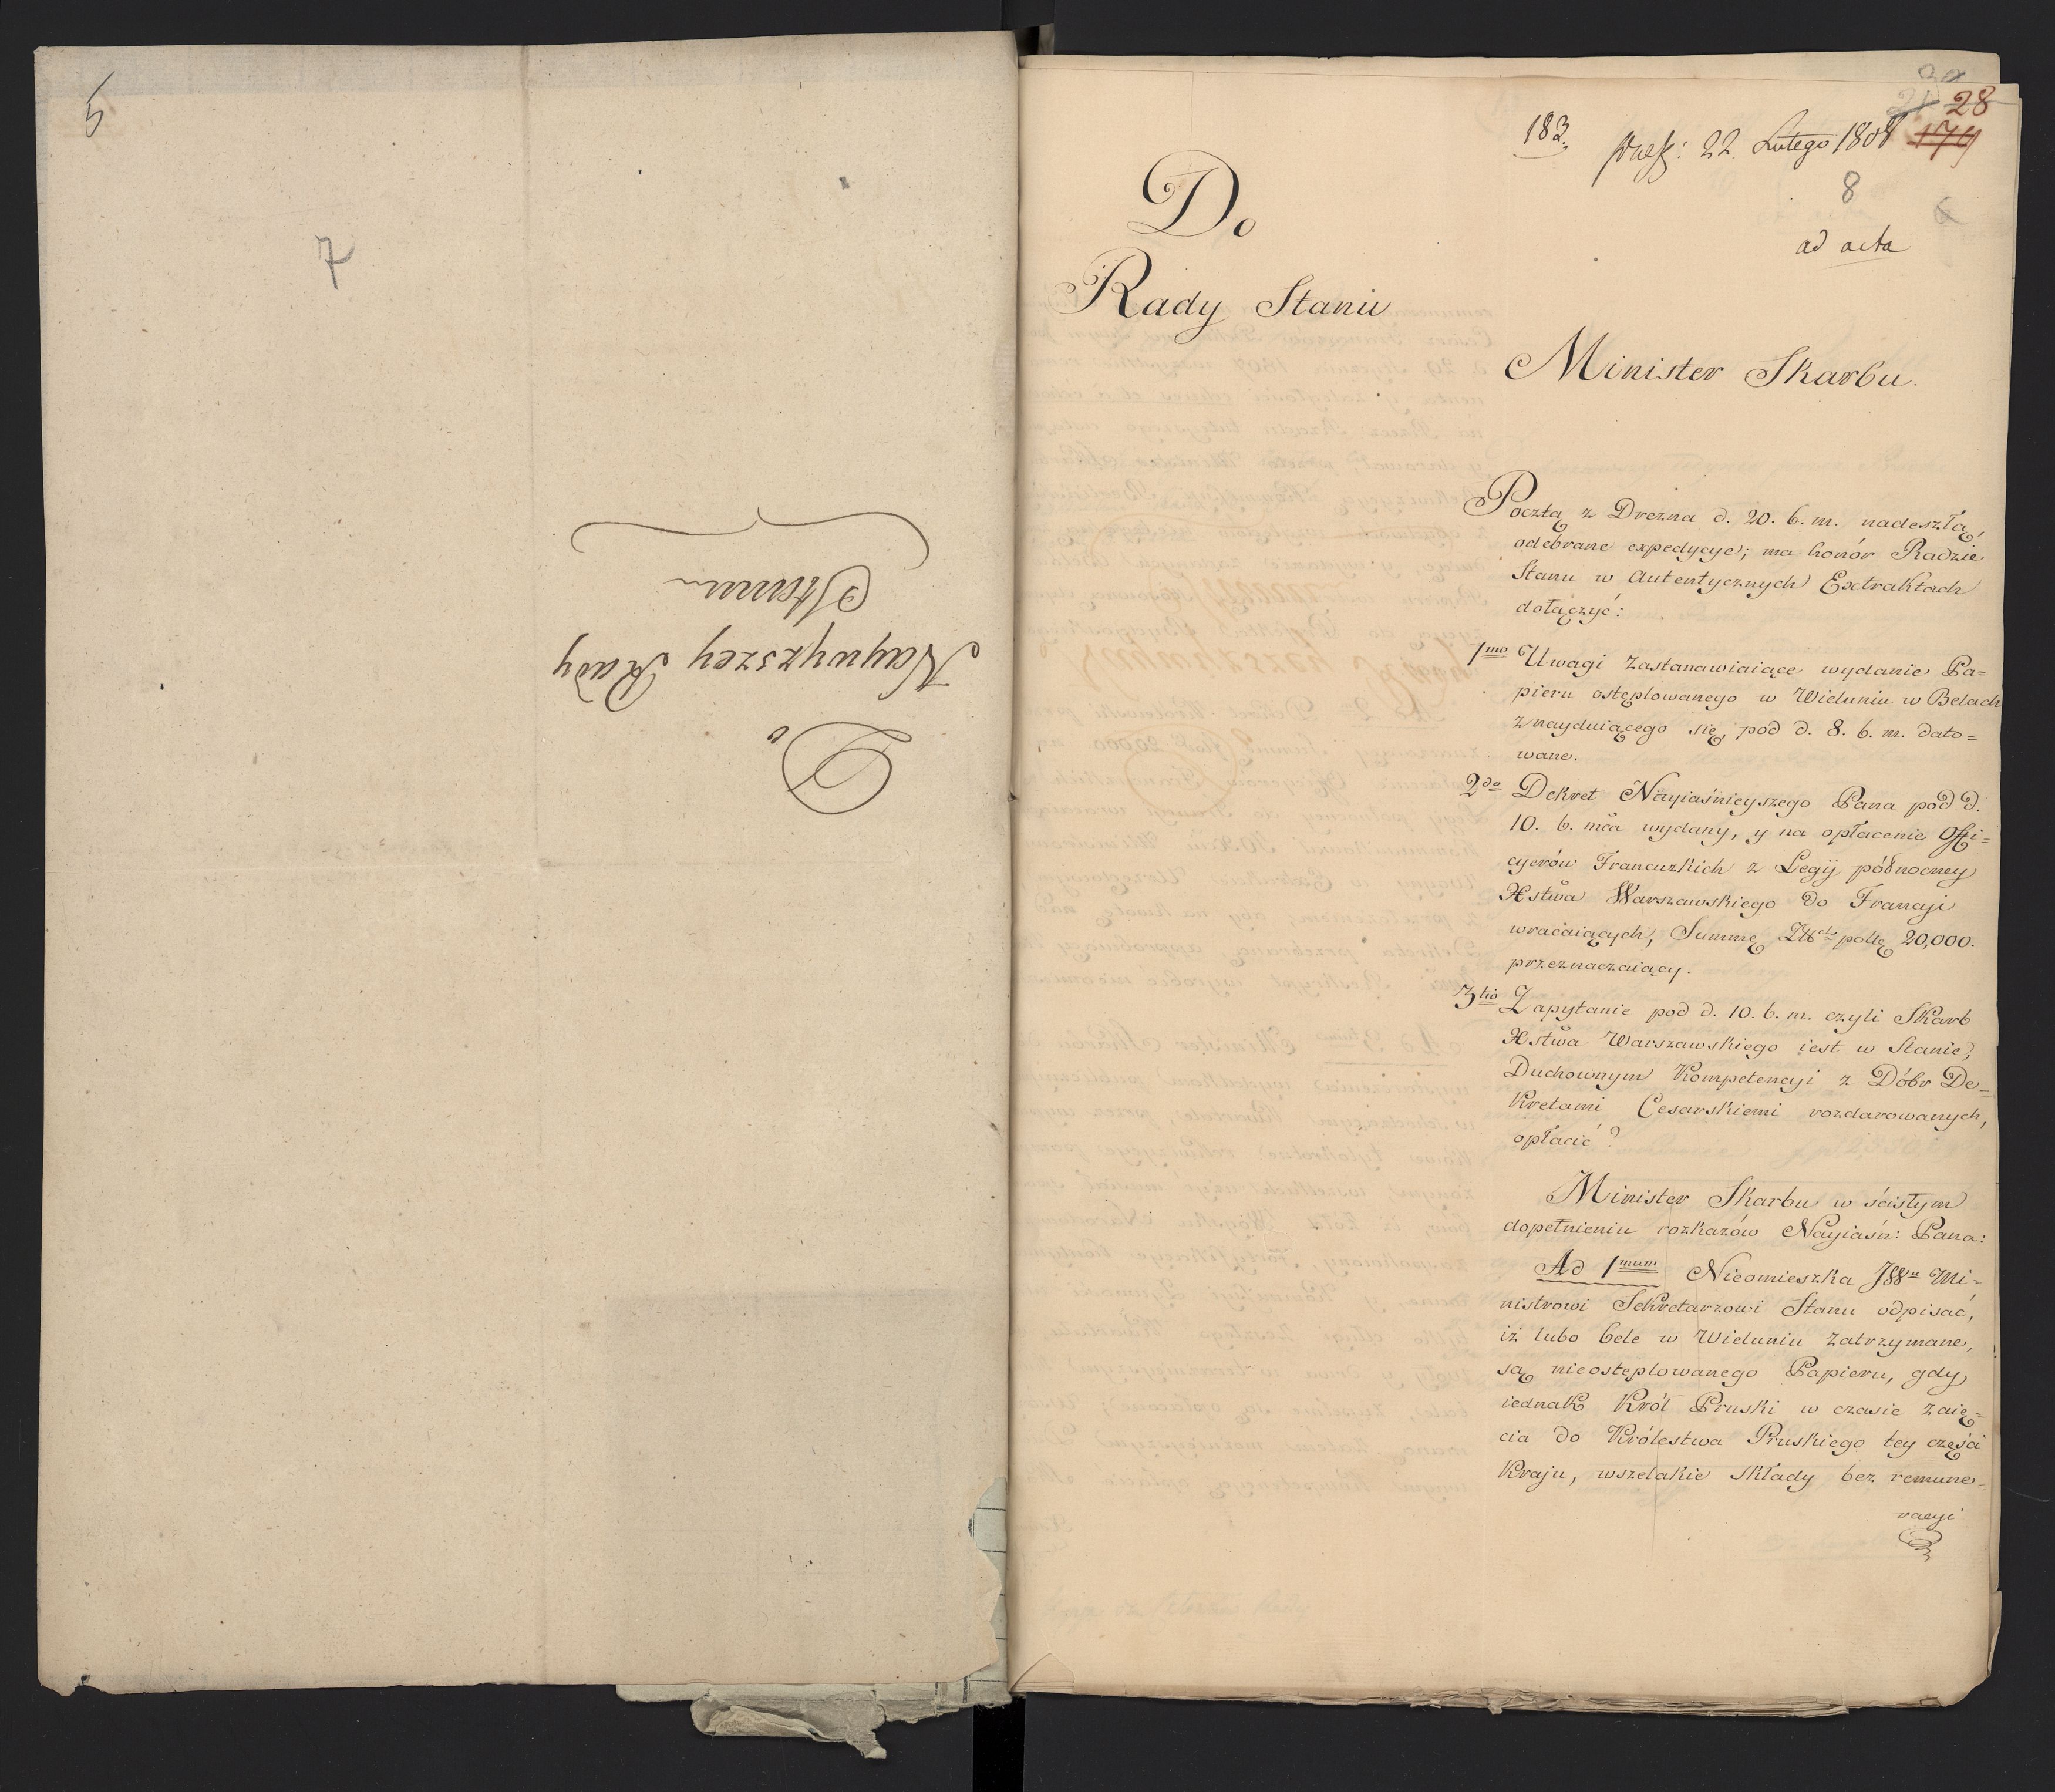 5
7
Do
Naywyzszey Rady
Stanu
28
174
183.
Pres: 22 Lutego 1808
8
6
ad acta
Do
Rady Stanu
Minister Skarbu.
Pocztą z Drezna d. 20. b. m. nadeszłą,
odebrane expedycye, ma honór Radzie
Stanu w Autentycznych Extraktach
dołączyć:
1mo Uwagi zastanawiaiące wydanie Pa=
pieru ostęplowanego w Wieluniu w Belach
znayduiącego się, pod d. 8. b. m. dato=
wane.
2do Dekret Nayiaśnieyszego Pana pod d.
10. b. mca wydany, y na opłacenie Offi=
cyerów Francuzkich z Legij północney
Xstwa Warszawskiego do Francyi
wracaiących, Summę polłę 20,000.
przeznaczaiący.
3tio Zapytanie pod d. 10. b. m. czyli Skarb
Xstwa Warszawskiego iest w Stanie,
Duchownym Kompetencyi z Dóbr De=
kretami Cesarskiemi rozdarowanych,
opłacić?
Minister Skarbu w ścisłym
dopełnieniu rozkazów Nayiaśn: Pana:
Ad 1mum Nieomieszka JWu Mi=
nistrowi Sekretarzowi Stanu odpisać,
iż lubo bele w Wieluniu zatrzymane,
są nieostęplowanego Papieru, gdy
iednak Król Pruski w czasie zaię=
cia do Królestwa Pruskiego tey części
Kraju, wszelakie Składy bez remune=
racyi